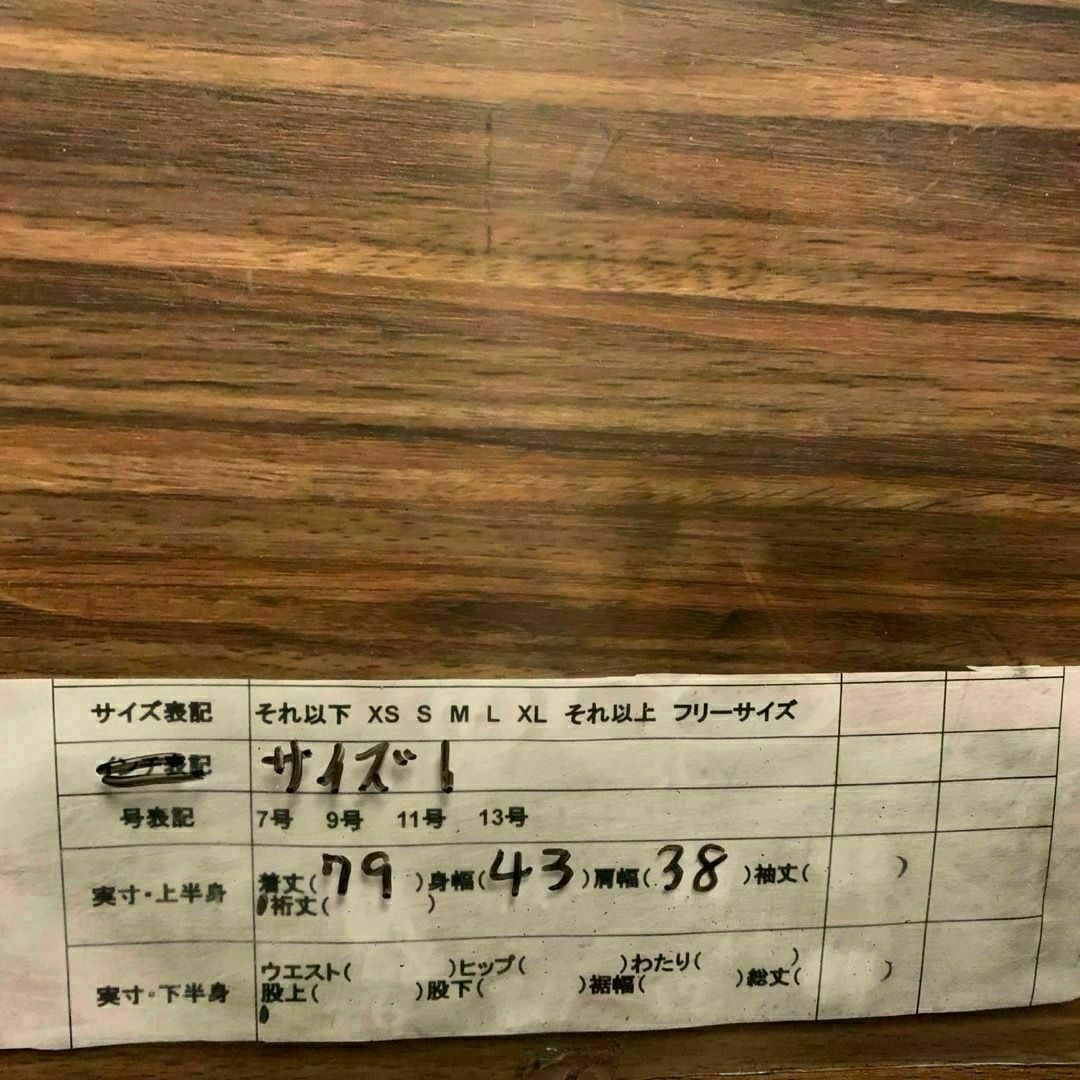 サイズ表記 それ以下 XS S M L XL それ以上 フリーサイズ
インチ表記 サイズ1
号表記 7号 9号 11号 13号
実寸・上半身 着丈(79)身幅(43)肩幅(38)袖丈( )
裄丈( )
ウエスト( )ヒップ( )わたり( )
実寸・下半身 股上( )股下( )裾幅( )総丈( )